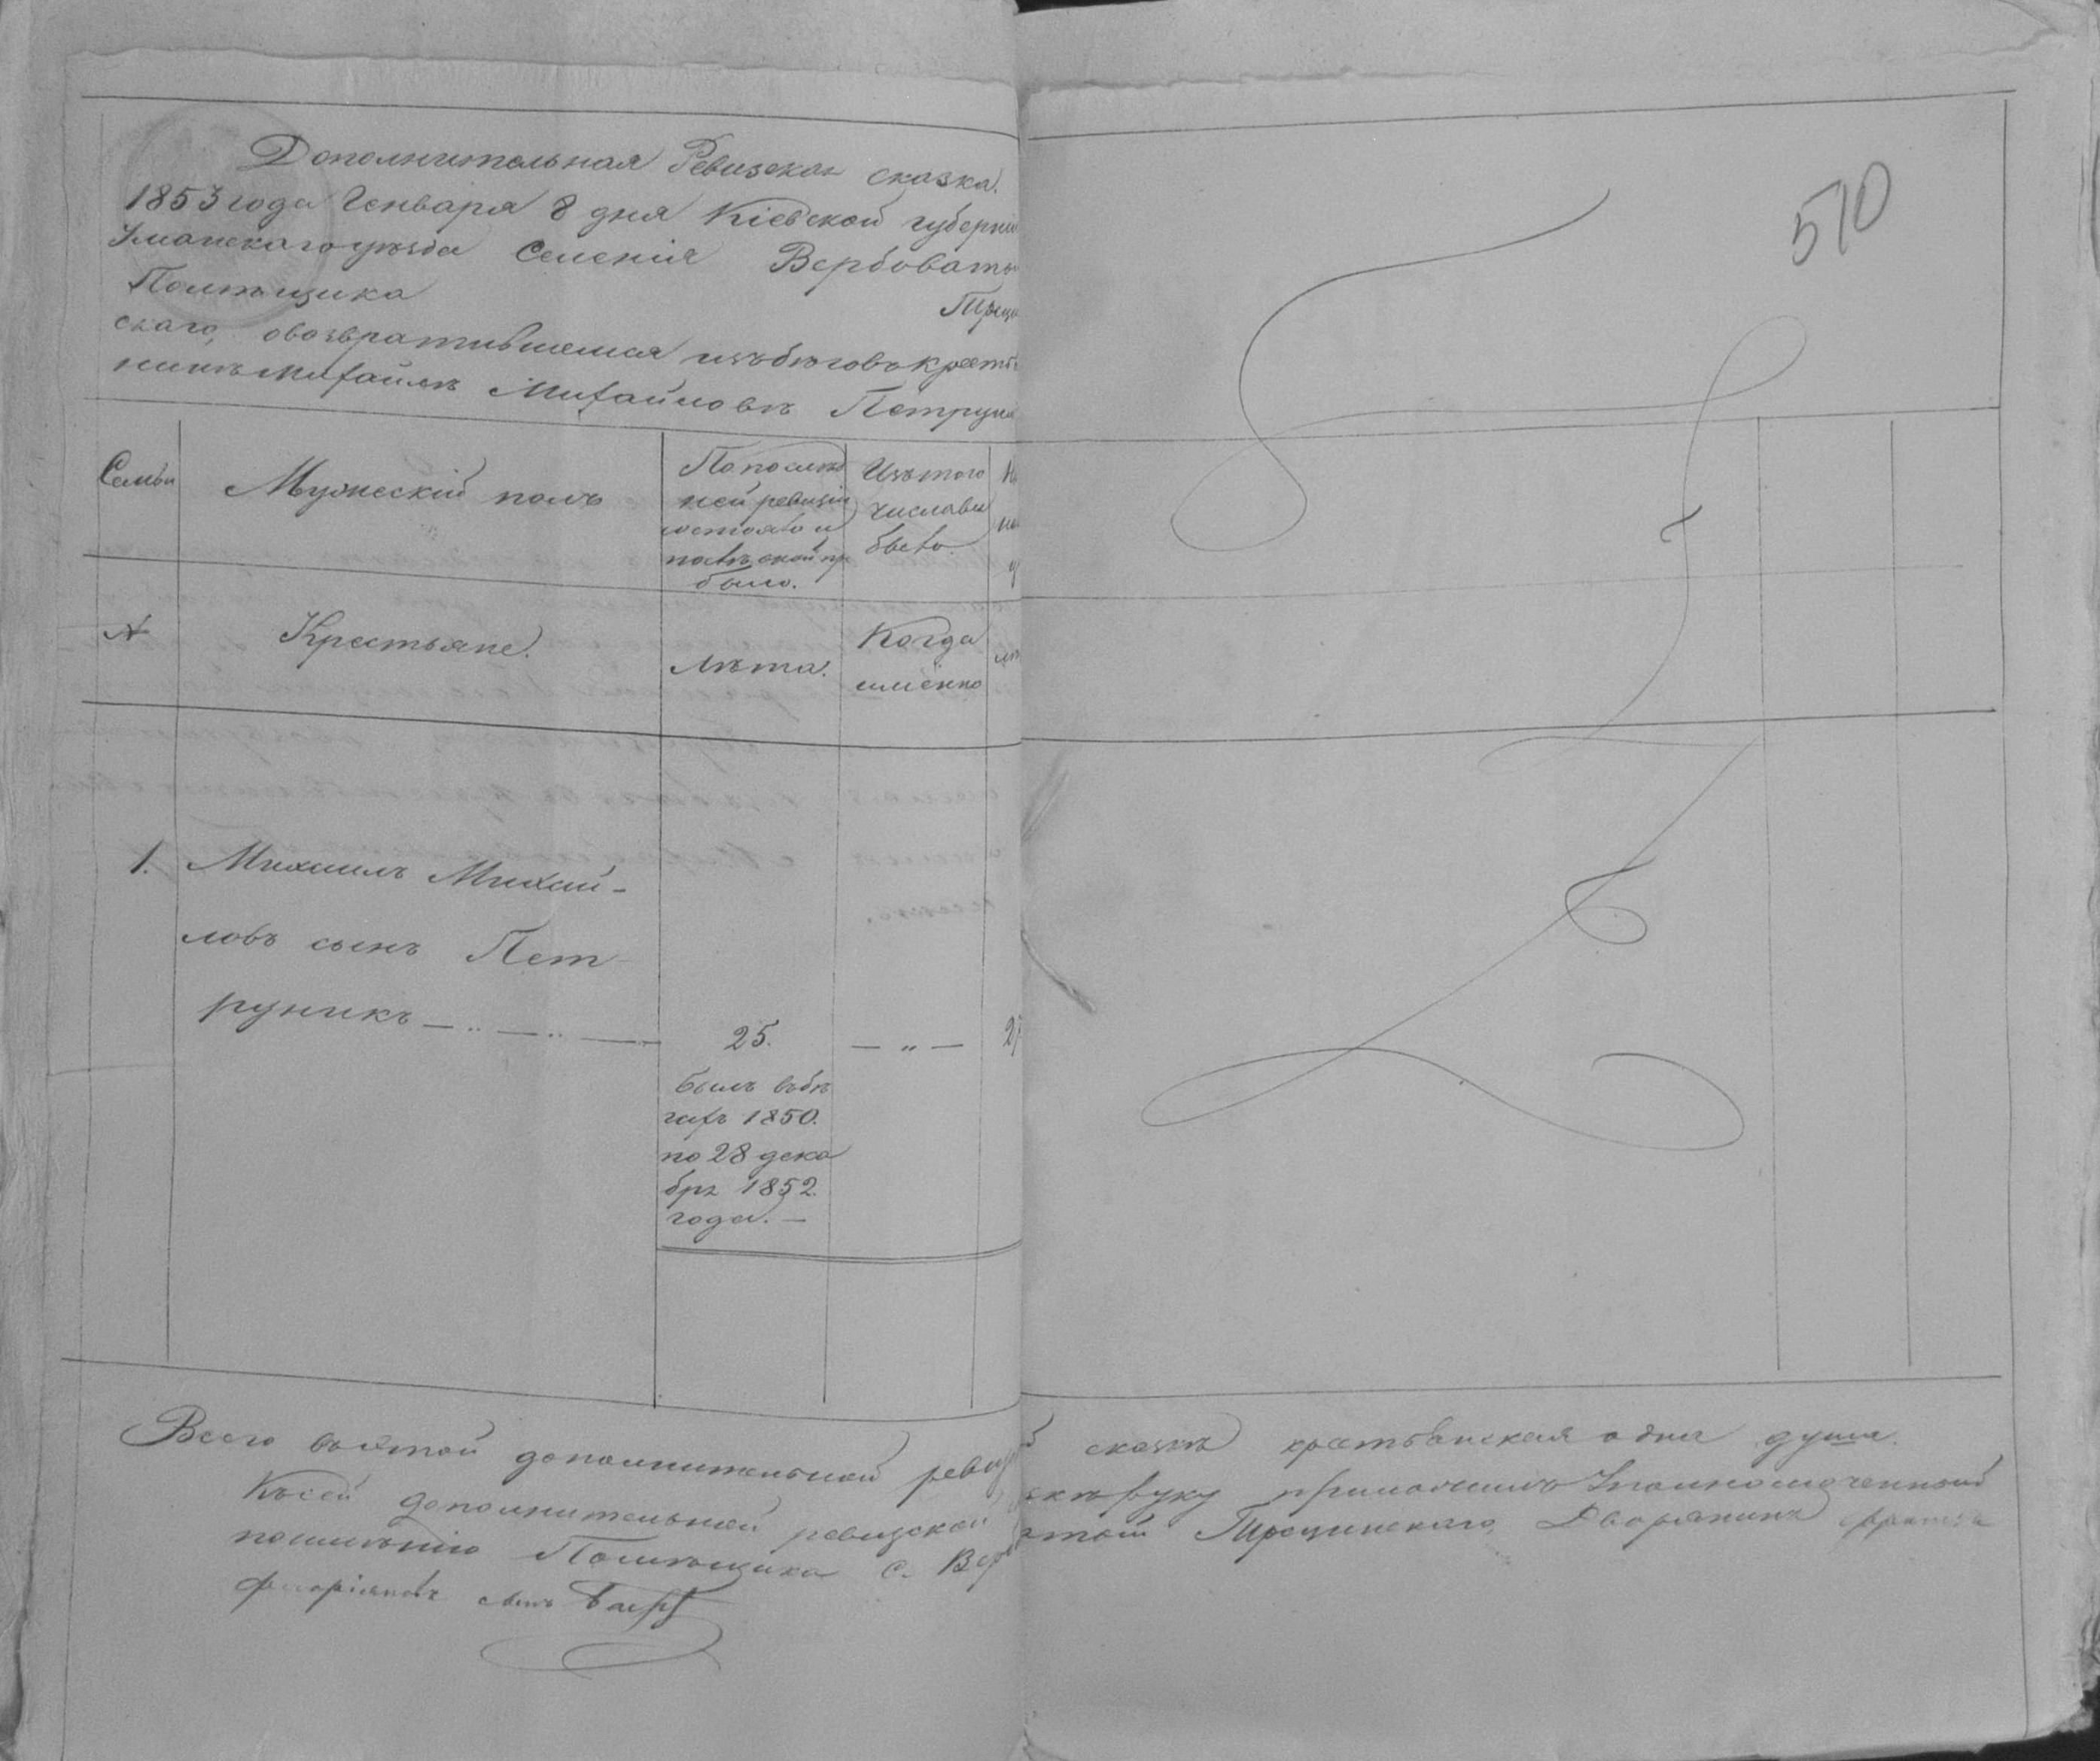 Дополнительная Ревизская сказка.
1853 года Генваря 8 дня Кіевской губерніи
Уманскаго уѣзда Селенія Вербоватой
Помѣщика Трощи
скаго, овозвратившемся изъбѣговъ крестья
нинѣ Михайлѣ Михайловѣ Петруни
510
Семьи
Мужескій полъ
Попослѣд
ней ревизіи
состояло и
послѣ оной пр
было.
Изътого
числавы
было.
№
Крестьяне.
лѣта.
Когда
именно
1.
Михаилъ Михай-
ловъ сынъ Пет
руникъ
25.
27
былъ вбѣ
гахъ 1850.
по 28 дека
бря 1852
года. —
Всего въэтой дополнительной ревизской сказкѣ крестьянская одна душа.
Ксей дополнительной ревизской сказкѣ руку приложилъ Уполномоченный
Помѣщика С. Вербоватой Трощинскаго, Дворянинъ Францъ
сынъ